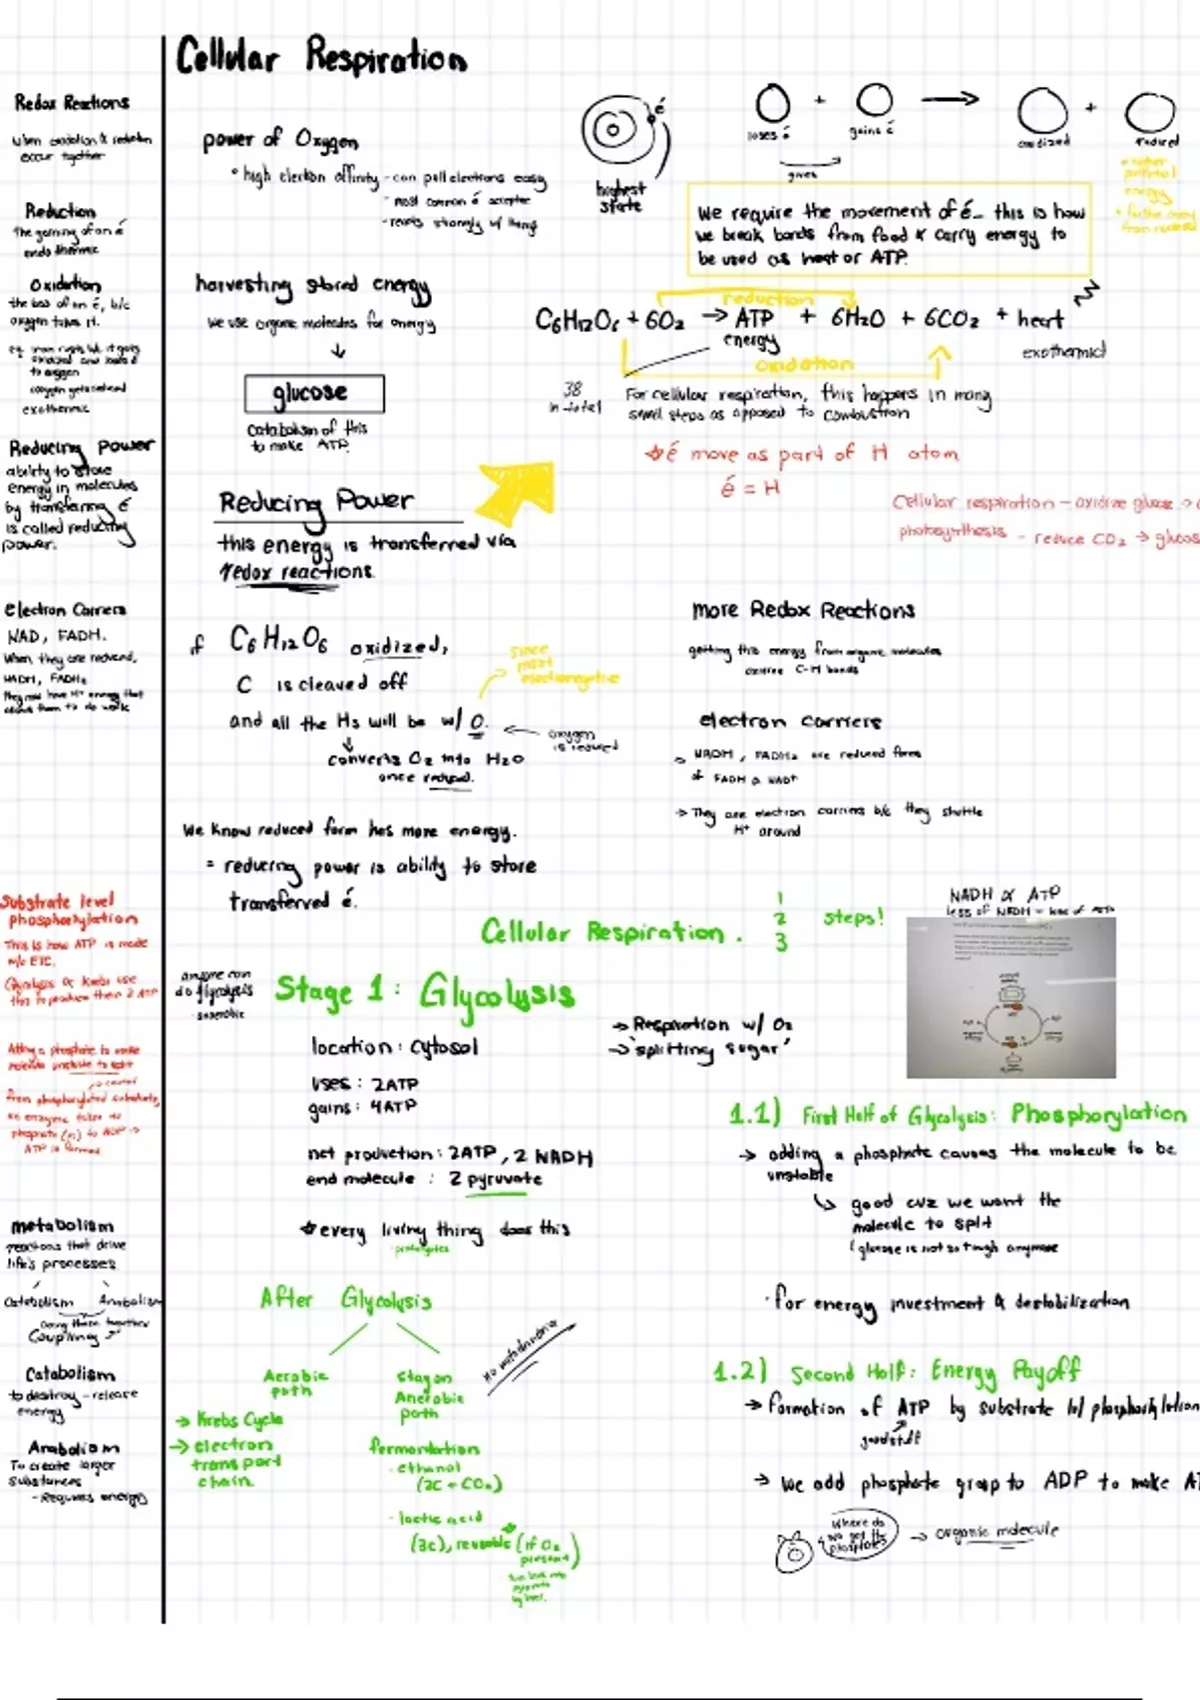 Cellular Respiration
Redox Reactions
when oxidation & reduction
occur together
Reduction
The gaining of an é
endothermic
Oxidation
the loss of an é, b/c
oxygen takes it.
to oxygen
exothermic
Reducing Power
ability to store
energy in molecules
by transferring é
is called reducing
power.
electron Carriers
NAD, FADH.
When they are reduced,
NADH, FADH₂
they now have H⁺ energy that
allows them to do work
Substrate level
phosphorylation
This is how ATP is made
w/o ETC.
Glycolysis & Krebs use
this to produce their 2 ATP
Adding a phosphate to make
molecule unstable to split
from phosphorylated substrate,
an enzyme takes
phosphate to ADP →
ATP is formed
metabolism
reactions that drive
life's processes
Catabolism Anabolism
doing these together
Coupling
Catabolism
to destroy - release
energy
Anabolism
To create larger
substances
- Requires energy
power of Oxygen
• high electron affinity - can pull electrons easy
- most common é acceptor
- reacts strongly w/ things
é
highest
state
+ → +
loses é gains é oxidized reduced
gives
• higher
potential
energy
• further away
from nucleus
We require the movement of é - this is how
we break bonds from food & carry energy to
be used as heat or ATP.
harvesting stored energy
We use organic molecules for energy
↓
glucose
catabolism of this
to make ATP.
reduction
C6H12O6 + 6O2 → ATP + 6H2O + 6CO2 + heat
energy
exothermic!
oxidation
38
in total
For cellular respiration, this happens in many
small steps as opposed to combustion
é move as part of H atom
é = H
Cellular respiration - oxidize glucose →
photosynthesis - reduce CO2 → glucos
Reducing Power
this energy is transferred via
redox reactions.
if C6H12O6 oxidized,
C is cleaved off
and all the Hs will be w/ O.
since
most
electronegative
← oxygen
is reduced
converts O2 into H2O
once reduced.
We know reduced form has more energy.
= reducing power is ability to store
transferred é.
more Redox Reactions
getting this energy from organic molecules
C-H bonds
electron carriers
NADH, FADH₂ are reduced forms
of FADH & NAD⁺
→ They are electron carriers b/c they shuttle
H⁺ around
Cellular Respiration.
1
2
3
steps!
NADH & ATP
less of NADH = less of ATP
anyone can
do glycolysis
- anaerobic
Stage 1: Glycolysis
location: cytosol
uses: 2ATP
gains: 4ATP
net production: 2ATP, 2 NADH
end molecule: 2 pyruvate
every living thing does this
- prokaryotes
→ Respiration w/ O2
→ 'splitting sugar'
1.1) First Half of Glycolysis: Phosphorylation
→ adding a phosphate causes the molecule to be
unstable
↳ good cuz we want the
molecule to split
(glucose is not so tough anymore
· for energy investment & destabilization
1.2) Second Half: Energy Payoff
→ formation of ATP by substrate lvl phosphorylation
good stuff
→ We add phosphate group to ADP to make AT
Where do
we get the
phosphate?
→ organic molecule
After Glycolysis
Aerobic
path
→ Krebs Cycle
→ electron
transport
chain
stay on
Anerobic
path
no mitochondria
fermentation
- ethanol
(2C + CO2)
- lactic acid
(3C), reusable (if O2
present)